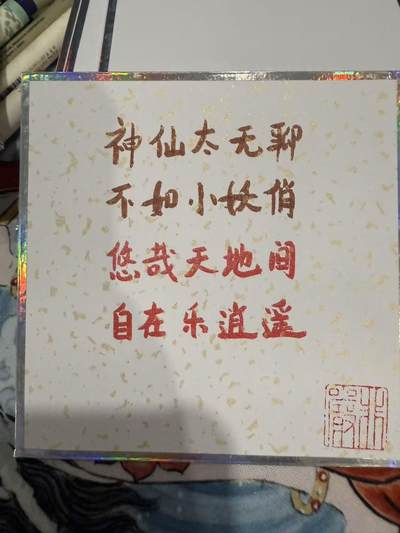 神仙太无聊
不如小妖俏
悠哉天地间
自在乐逍遥